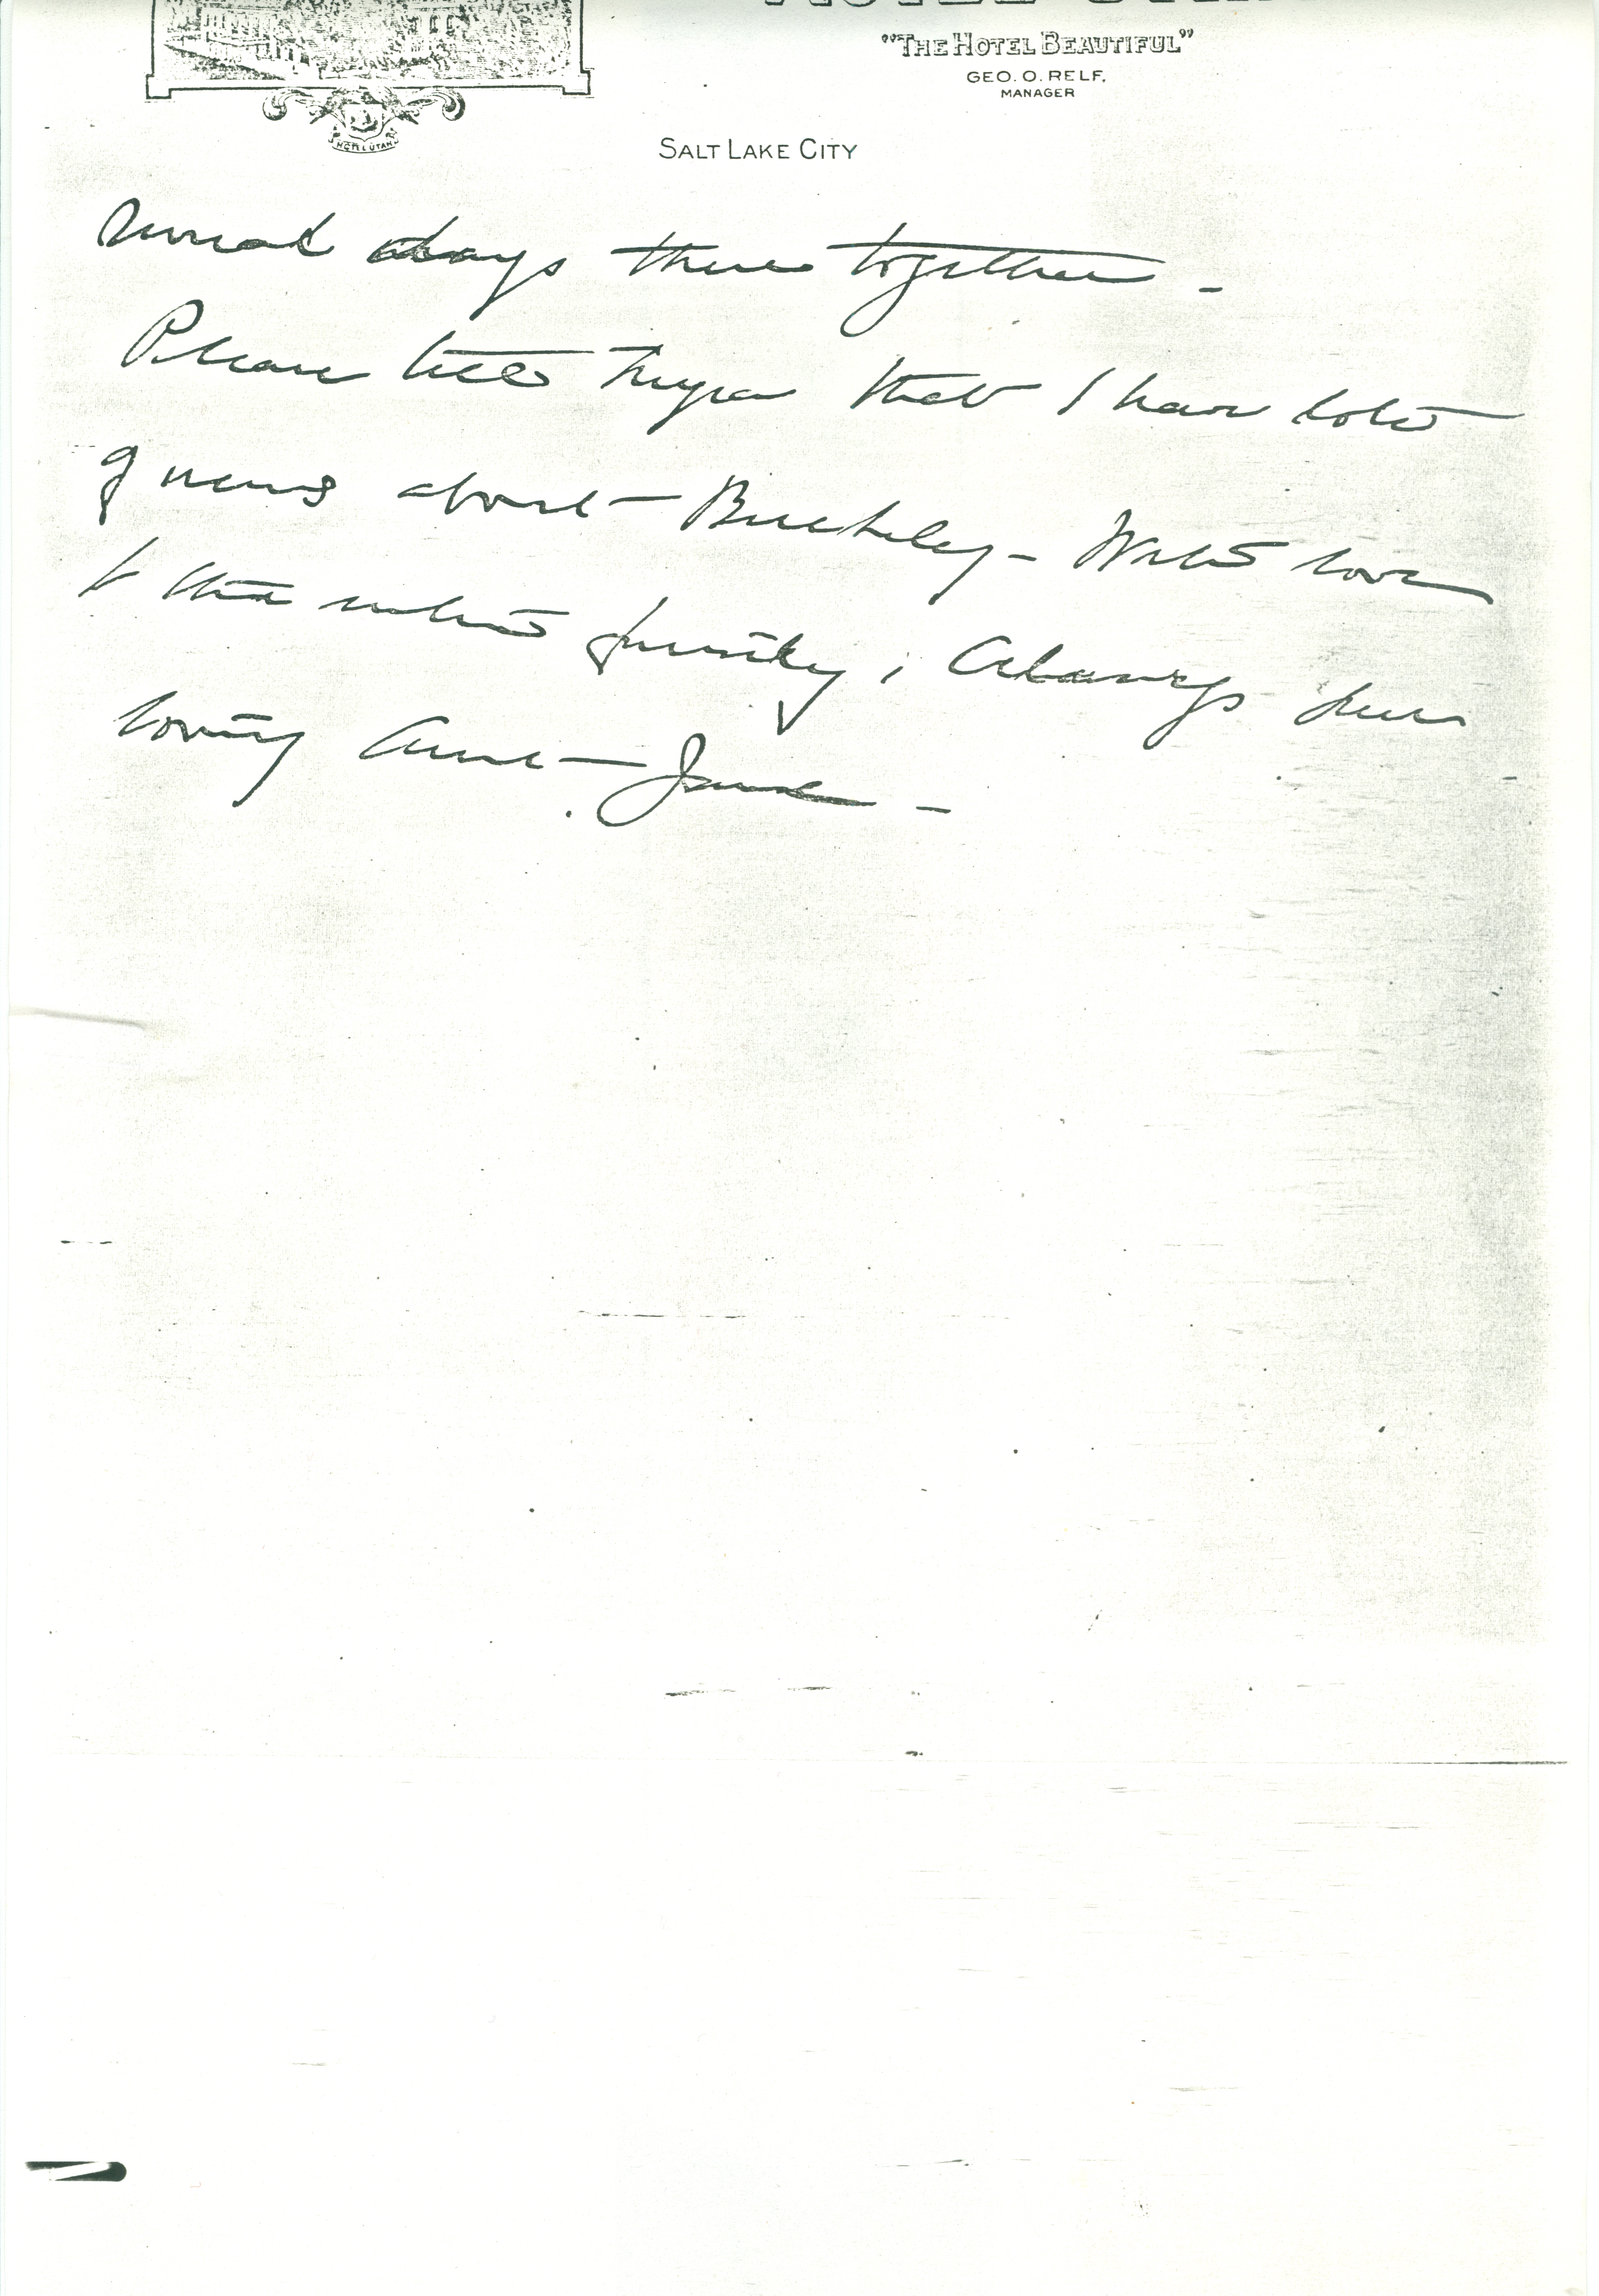 "THE HOTEL BEAUTIFUL"
GEO. O. RELF,
MANAGER
HOTEL UTAH
SALT LAKE CITY
several days there together -
Please tell that I have lots
of news about - Berkeley - With love
to the whole family, Always your
loving Aunt - Jane -